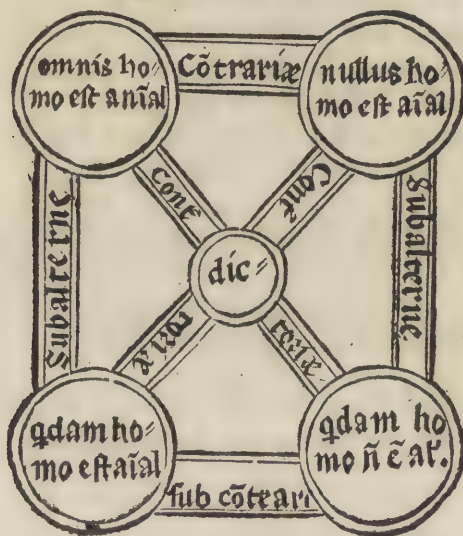 omnis ho⸗
mo est anīal
Cōtrariæ
nullus ho⸗
mo est aīal
Subalterne
Cont̄
Cont̄
Subalterne
dic⸗
toriæ
toriæ
q̄dam ho⸗
mo est aīal
sub cōtrari
q̄dam ho
mo n̄ ē al'.